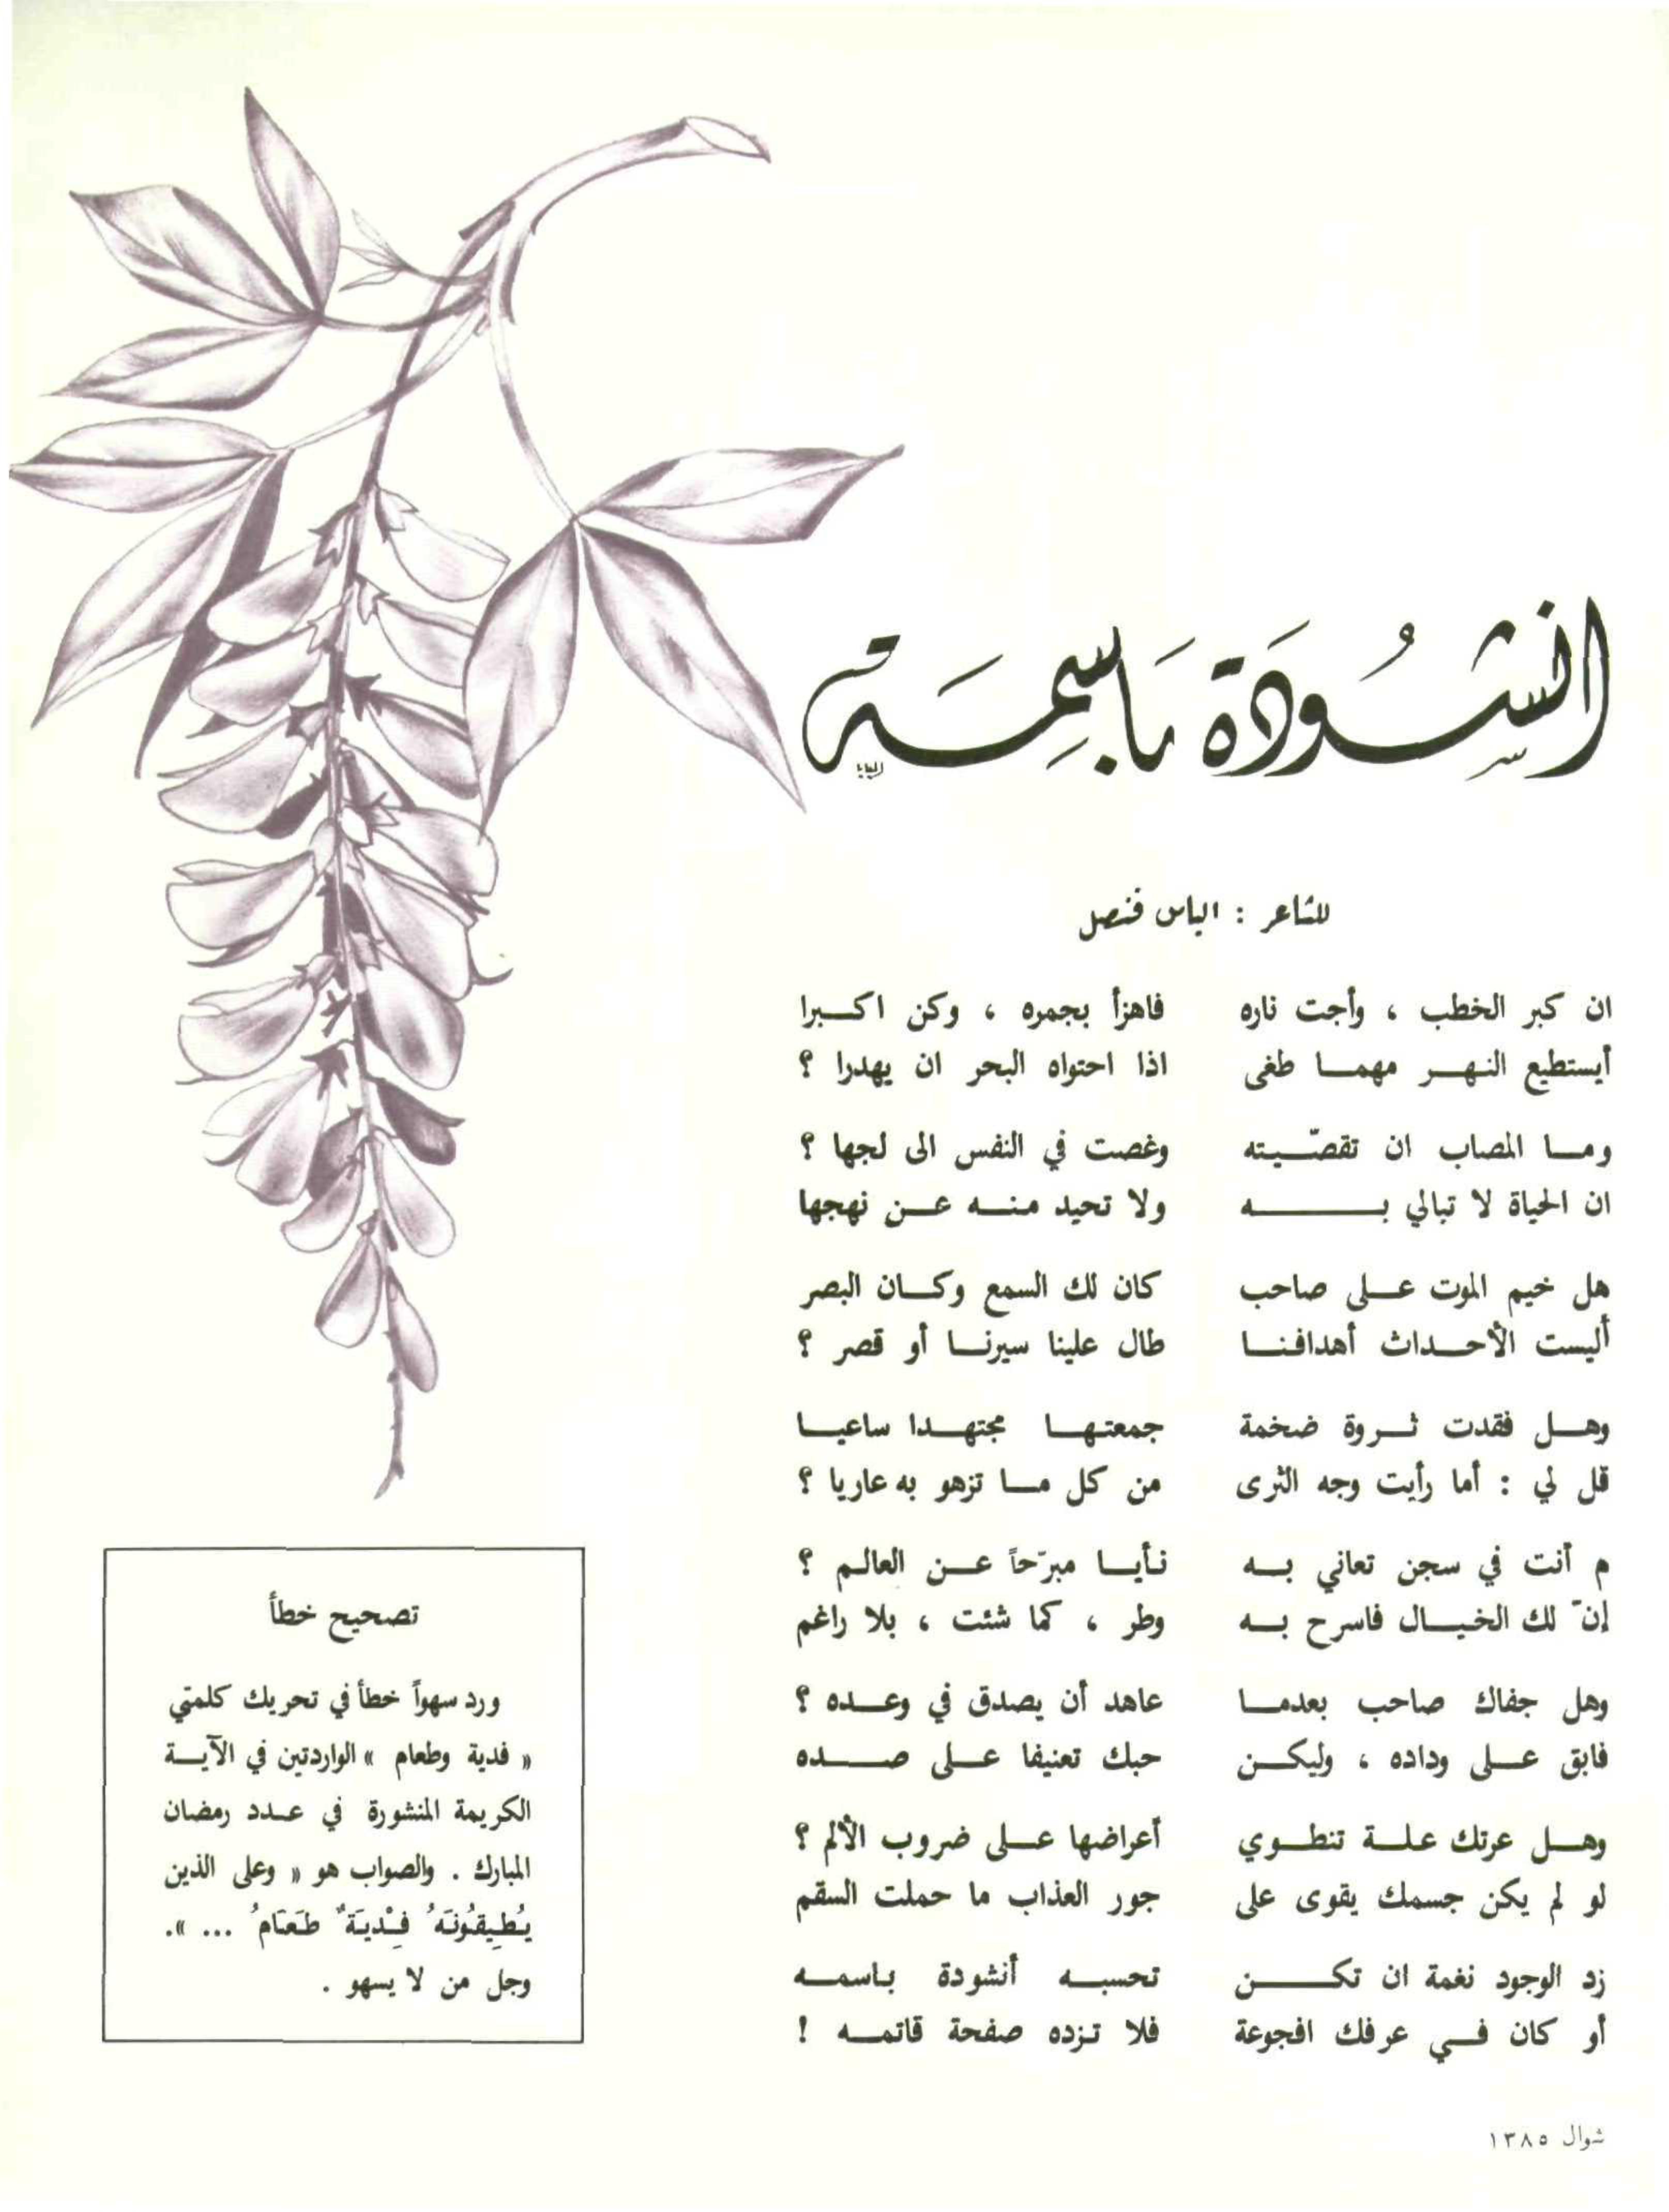 انشودة باسمة
للشاعر : الياس قنصل
ان كبر الخطب ، وأجت ناره فاهزأ بجمره ، وكن اكبرا
أيستطيع النهر مهما طغى اذا احتواه البحر ان يهدرا ؟
وما المصاب ان تقصّيته وغصت في النفس الى لجها ؟
ان الحياة لا تبالي به ولا تحيد منه عن نهجها
هل خيم الموت على صاحب كان لك السمع وكان البصر
أليست الأحداث أهدافنا طال علينا سيرنا أو قصر ؟
وهل فقدت ثروة ضخمة جمعتها مجتهدا ساعيا
قل لي : أما رأيت وجه الثرى من كل ما تزهو به عاريا ؟
م أنت في سجن تعاني به نأيا مبرّحاً عن العالم ؟
إنّ لك الخيال فاسرح به وطر ، كما شئت ، بلا راغم
وهل جفاك صاحب بعدما عاهد أن يصدق في وعده ؟
فابق على وداده ، وليكن حبك تعنيفا على صده
وهل عرتك علة تنطوي أعراضها على ضروب الألم ؟
لو لم يكن جسمك يقوى على جور العذاب ما حملت السقم
زد الوجود نغمة ان تكن تحسبه أنشودة باسمه
أو كان في عرفك افجوعة فلا تزده صفحة قاتمه !
تصحيح خطأ
ورد سهواً خطأ في تحريك كلمتي
« فدية وطعام » الواردتين في الآية
الكريمة المنشورة في عدد رمضان
المبارك . والصواب هو « وعلى الذين
يُطِيقُونَهُ فِدْيَةٌ طَعَامُ ... ».
وجل من لا يسهو .
شوال ١٣٨٥